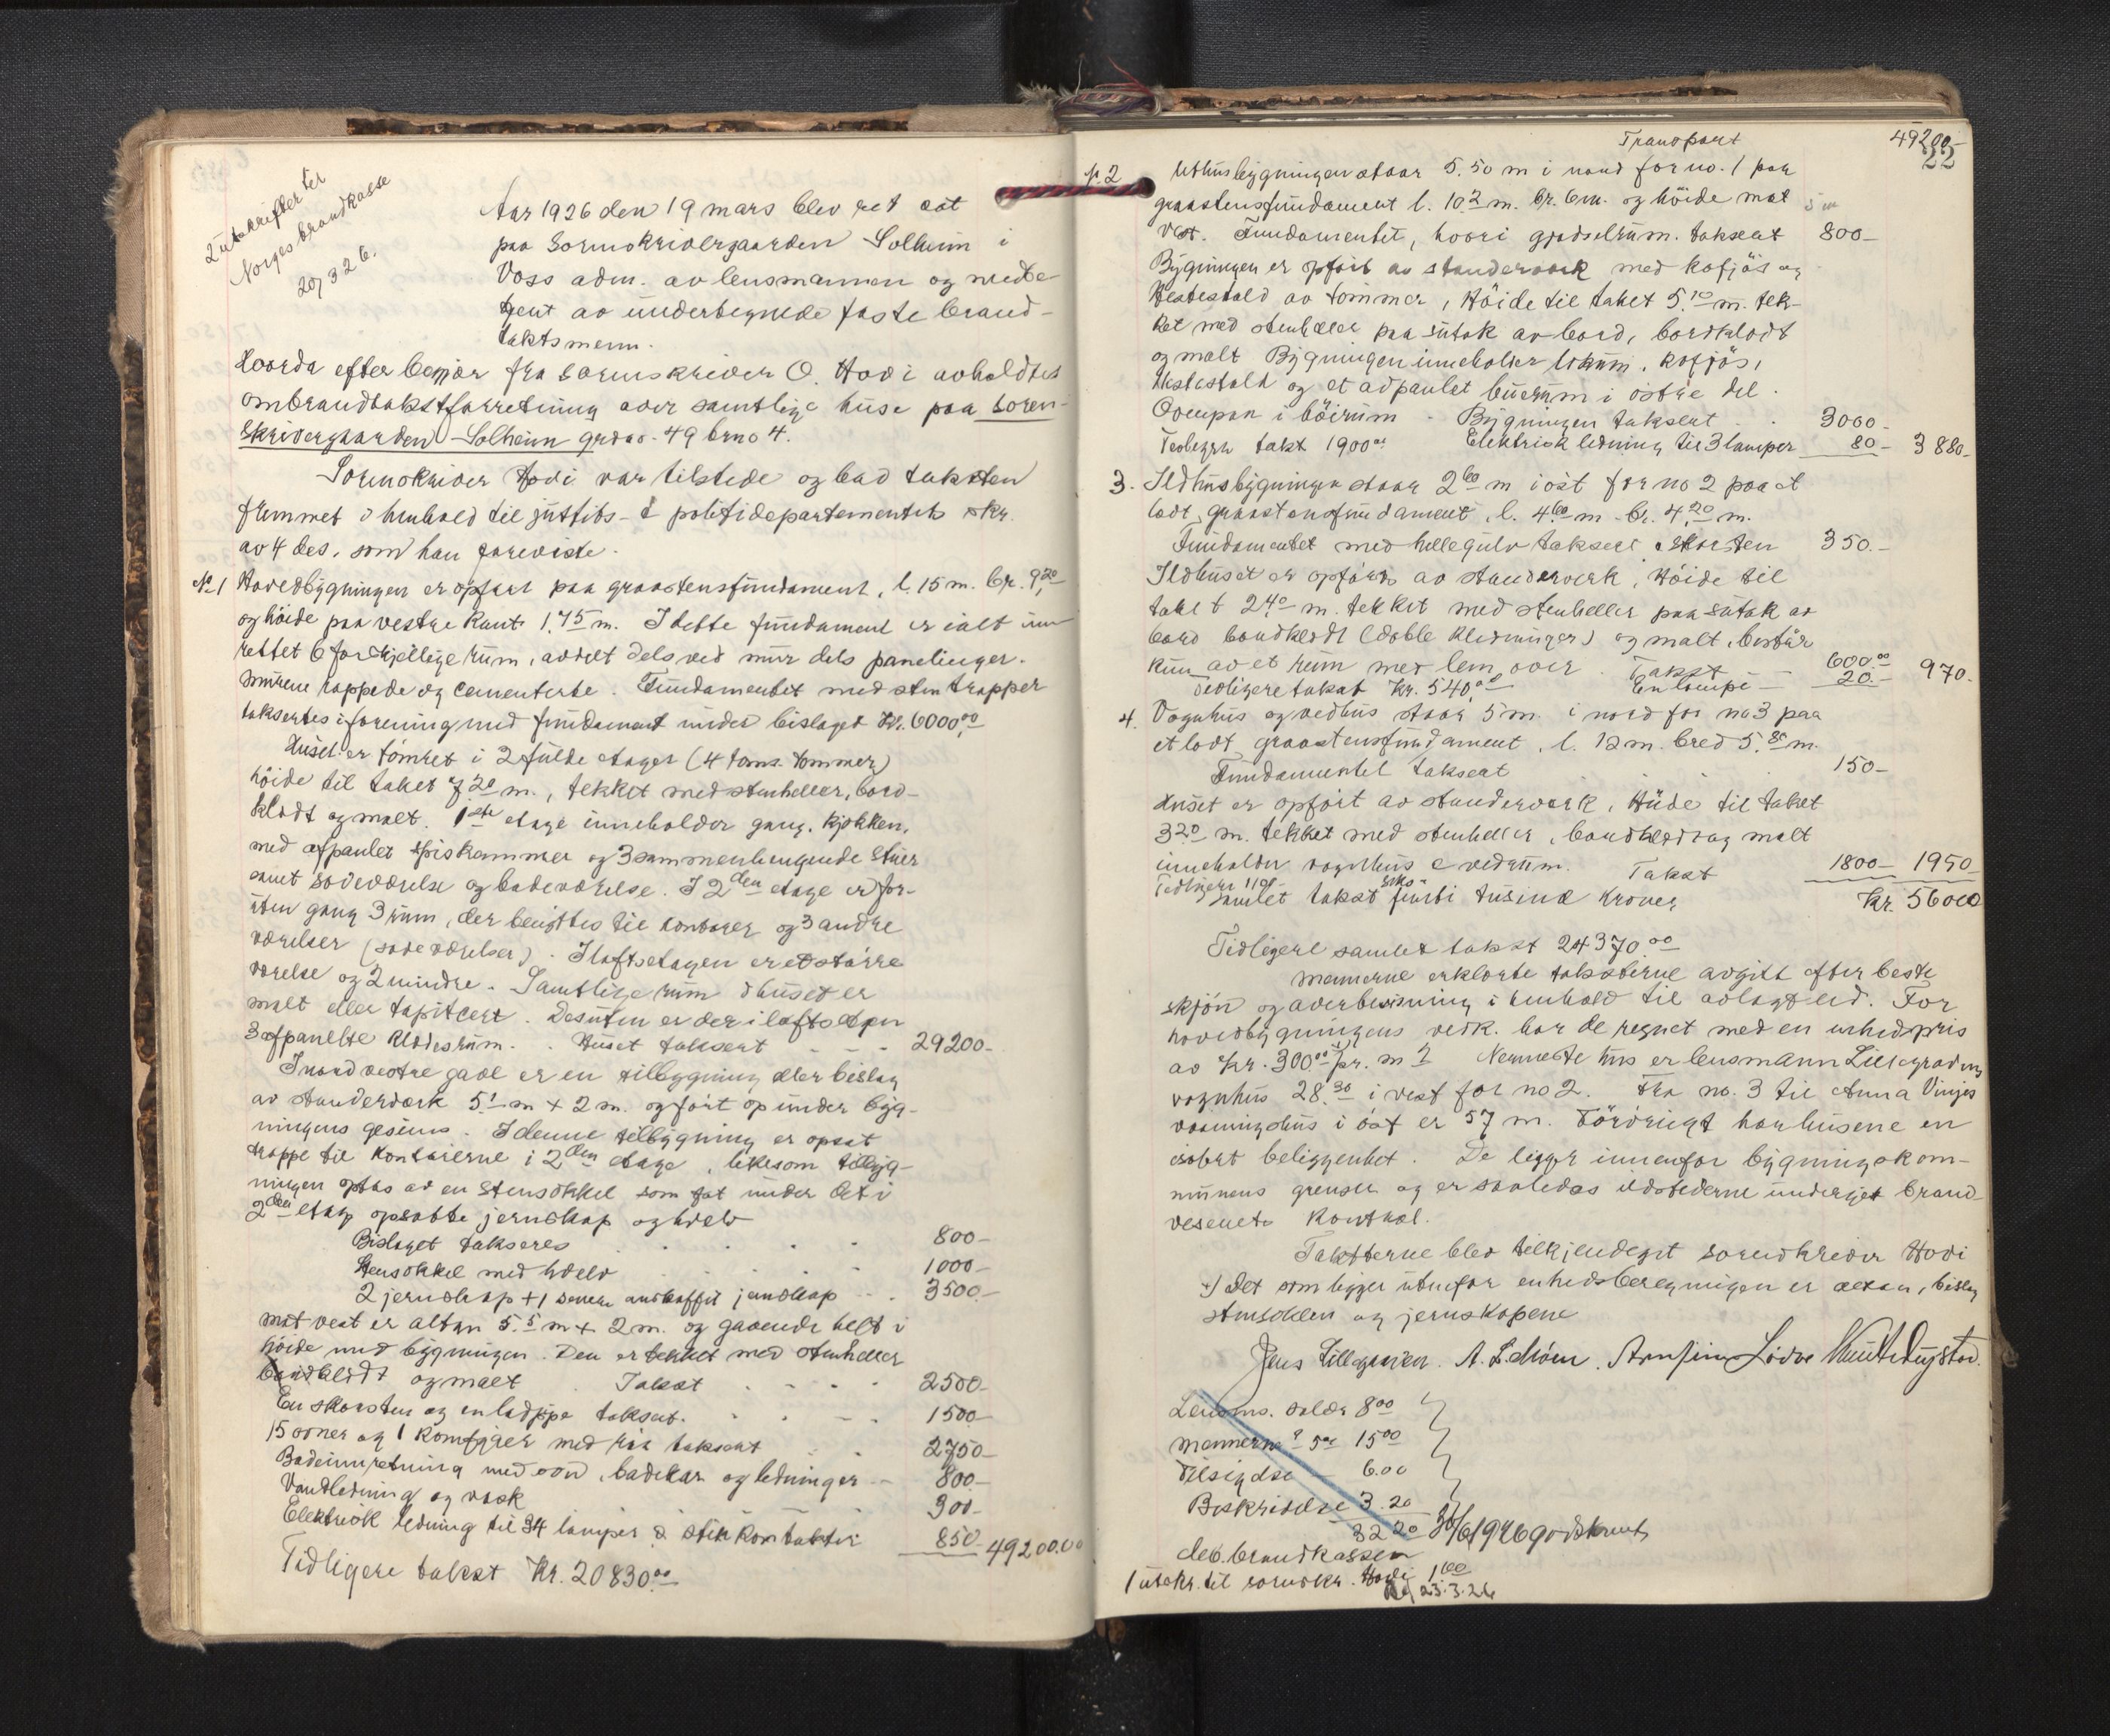 2 utskrifter til
Norges brandkasse
20/3 26.
Aar 1926 den 19 mars blev ret sat
paa Sorenskrivergaarden Solheim i
Voss adm. av lensmannen og med be
tjent av undertegnede faste brand-
takstmenn.
Hvorda efter begjær fra sorenskriver O. Hovi avholdtes
ombrandtakstforretning over samtlige huse paa Soren-
skrivergaarden Solheim grdno. 49 brno 4.
Sorenskriver Hovi var tilstede og bad taksten
fremmet i henhold til justits- & politidepartementets skr.
av 4 des. som han foreviste.
No 1 Hovedbygningen er opført paa graastensfundament, l. 15 m. br. 9,20
og höide paa vestre kant 1,75 m. I dette fundament er ialt inn
rettet 6 forskjellige rum, avdelt dels ved mur dels panelinger.
Murene rappede og cementerte. Fundamentet med sten trapper
taksertes i forening med fundament under bislaget Kr. 6000,00
Huset er tömret i 2 fulde etager (4 toms. tömmer)
höide til taket 7,20 m., tekket med stenheller, bord-
klædt og malt. 1ste etage inneholder gang, kjökken,
med afpanlet spiskammer og 3 sammenhengende stuer
samt soveværelse og badeværelse. I 2den etage er for-
uten gang 3 rum, der benyttes til kontorer og 3 andre
værelser (soveværelser). I loftsetagen er et större
værelse og 2 mindre. Samtlige rum i huset er
malt eller tapitcert. Desuten er der i loftsetagen
3 afpanelte klædesrum. Huset taksert - - - 29200-
I nordvestre gavl er en tilbygning eller beslag
av standerværk 5,1 m + 2 m. og fört op under byg-
ningens gesims. I denne tilbygning er opsat
trappe til kontorerne i 2den etage, likesom tilbyg-
ningen optas av en stensokkel som fot under det i
2den etag opsatte jernskap og hvelv
Bislaget takseres . . . . 800-
Stensokkel med hvelv . . . 1000-
2 jernskap + 1 senere anskaffet jernskap - . 3500-
mot vest er altan 5,5 m + 2 m. og gaaende helt i
höide med bygningen. Den er tekket med stenheller
bordklædt og malt . Takst . . . . 2500-
En skorsten og en ladpipe taksert. . . - . 1500-
15 ovner og 1 komfyrer med rör taksert . . 2750-
Badeinnretning med ovn, badekar og ledninger - 800-
Vandledning og vask . 300-
Elektrisk ledning til 34 lamper & stikkontakter 850- 49200.00
Tidligere takst Kr. 20830.00
Transport 49200-
22
N. 2 Uthusbygningen staar 5.50 m i nord for no. 1 paa
graastensfundament l. 10,2 m. br. 6 m. og höide mot 3 m
vest. Fundamentet, hvori gjödselrum. taksert 800-
Bygningen er opfört av standerverk med kofjös og
Hestestald av tömmer, Höide til taket 5,10 m. tek-
ket med stenheller paa sutak av bord, bordklædt
og malt Bygningen inneholder lörum, kofjös,
Hestestald og et adpanlet buerum i östre del.
Ovenpaa i höirum . Bygningen taksert . . 3000-
Tidligere takt 1900,00 Elektrisk ledning til 3 lamper 80- 3880-
3. Ildhusbygningen staar 2,60 m i öst for no 2 paa et
lodt graastensfundament, l. 4,60 m - br. 4,20 m.
Fundamentet med hellegulv taksert & skorsten 350.-
Ildhuset er opfört av standerverk, Höide til
taket 2,40 m. tekket med stenheller paa sutak av
bord bordklædt (doble klædninger) og malt, bestaar
kun av et rum med lem over . Takst - 600.00
Tidligere takst Kr. 540,00 En lampe - 20.- 970.
4. Vognhus og vedhus staar 5 m. i nord for no 3 paa
et lodt graastensfundament, l. 12 m. bred 5,80 m.
Fundamentet taksert . . . . 150-
Huset er opfört av standerverk, Höide til taket
3,20 m. tekket med stenheller, bordklædt og malt
inneholder vognhus & vedrum. Takst 1800- 1950-
Tidligere 1100-
Samlet takst femti seks tusind kroner Kr. 56000
Tidligere samlet takst 24370.00
Mennerne erklærte taksterne avgitt efter beste
skjön og overbevisning i henhold til avlagt ed. For
hovedbygningens vedk. har de regnet med en enhedspris
av Kr. 300.00 pr. m2 Nermeste hus er lensmann Lillegravens
vognhus 28,30 i vest for no 2. Fra no. 3 til Anna Vinjes
vaaningshus i öst er 57 m. Forövrigt har husene en
isolert beliggenhet. De ligger innenfor bygningskom-
munens grenser og er saaledes ildstederne undergit brand
vesenets kontrol.
Taksterne blev tilkjendegit sorenskriver Hovi
+) Det som ligger utenfor enhedsberegningen er altan, bislag
stensokkelen og jernskapene
Jens Lillegraven. A. L. Möen. Arnfinn Lödve Knut Dugstad.
Lensms. salær 8,00
mennerne 5,00 15,00
Tilsigelse - 6.00
Beskrivelse 3.20
32 20 30/6 1926 godskrevet
deb. brandkassen
1 utskr. til sorenskr. Hovi 1,00
23.3.26